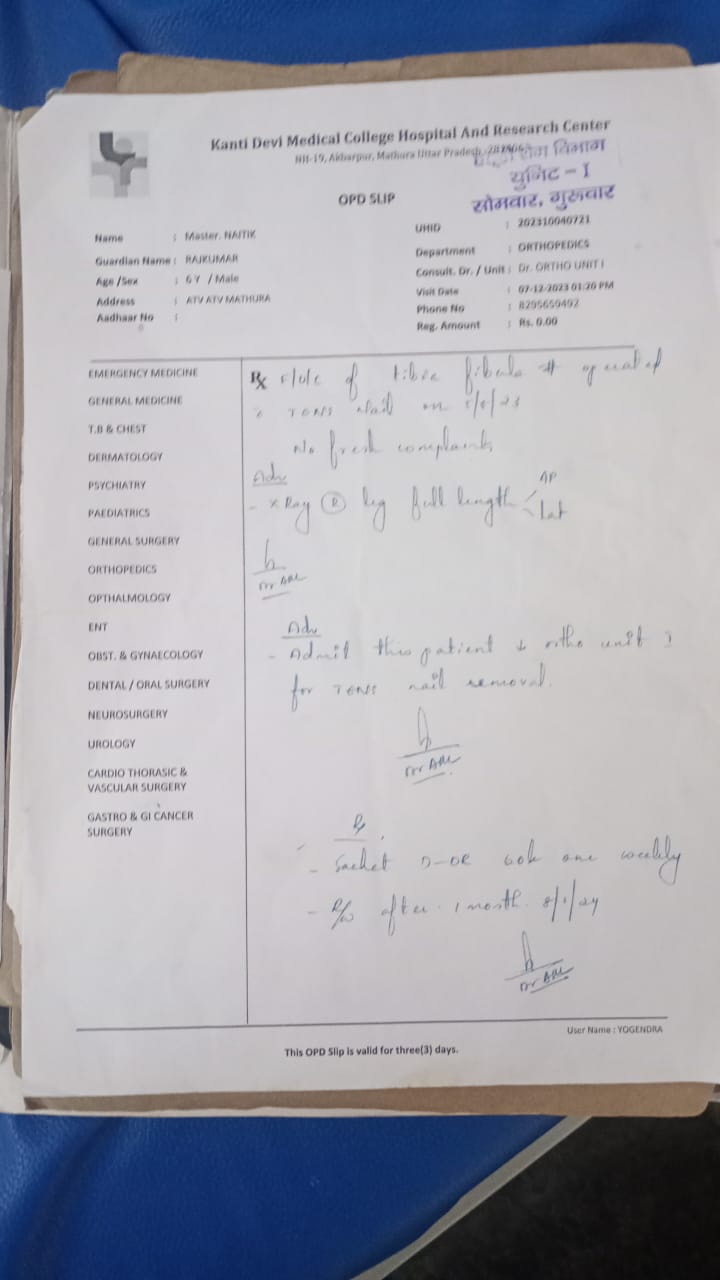 Kanti Devi Medical College Hospital And Research Center
NH-19, Akbarpur, Mathura Uttar Pradesh,
रोग विभाग
युनिट - I
सोमवार, गुरूवार
OPD SLIP
Name : Master. NAITIK
Guardian Name : RAJKUMAR
Age /Sex : 6 Y / Male
Address : ATV ATV MATHURA
Aadhaar No :
UHID : 202310040721
Department : ORTHOPEDICS
Consult. Dr. / Unit : Dr. ORTHO UNIT I
Visit Date : 07-12-2023 01:20 PM
Phone No : 8295659492
Reg. Amount : Rs. 0.00
EMERGENCY MEDICINE
GENERAL MEDICINE
T.B & CHEST
DERMATOLOGY
PSYCHIATRY
PAEDIATRICS
GENERAL SURGERY
ORTHOPEDICS
OPTHALMOLOGY
ENT
OBST. & GYNAECOLOGY
DENTAL / ORAL SURGERY
NEUROSURGERY
UROLOGY
CARDIO THORASIC &
VASCULAR SURGERY
GASTRO & GI CANCER
SURGERY
Rx F/U/C of tibia fibula # operated
c TENS Nail on
No fresh complaints
Adv
- X Ray (R) leg full length < AP
Lat
Adv
- Admit this patient ↓ ortho unit I
for TENS nail removal.
Rx
- Sachet D-OR 60k one weekly
- R/w after 1 month 8/1/24
User Name : YOGENDRA
This OPD Slip is valid for three(3) days.